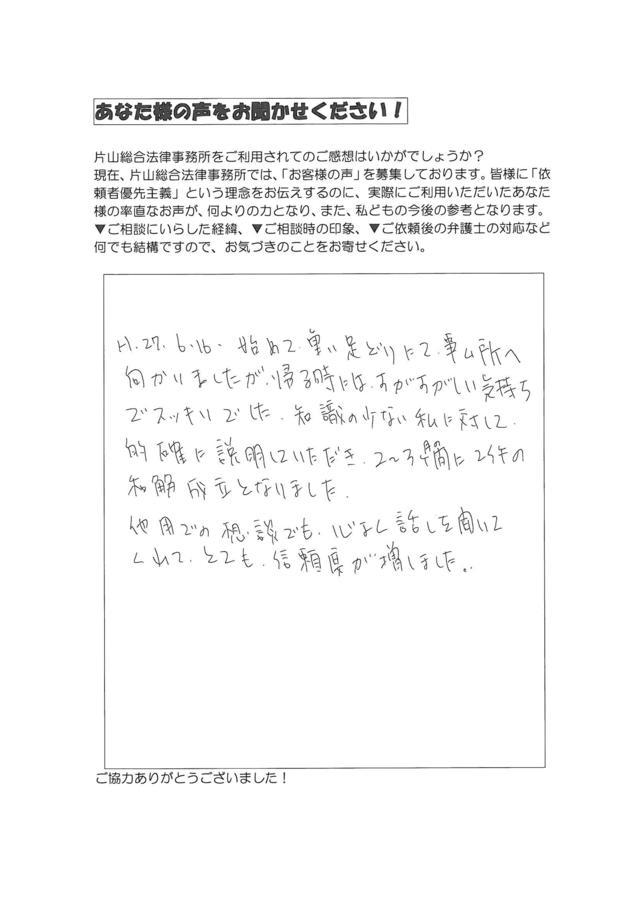 あなた様の声をお聞かせください！
片山総合法律事務所をご利用されてのご感想はいかがでしょうか？
現在、片山総合法律事務所では、「お客様の声」を募集しております。皆様に「依
頼者優先主義」という理念をお伝えするのに、実際にご利用いただいたあなた
様の率直なお声が、何よりの力となり、また、私どもの今後の参考となります。
▼ご相談にいらした経緯、▼ご相談時の印象、▼ご依頼後の弁護士の対応など
何でも結構ですので、お気づきのことをお寄せください。
H.27.6.16. 始めて.重い足どりにて.事ム所へ
向かいましたが.帰る時には.すがすがしい気持ち
でスッキリでした.知識の少ない私に対して.
的確に説明していただき.2〜3 間に2件の
和解成立となりました.
他用での想.談でも.心よく話しを聞いて
くれて.とても.信頼 が増しました..
ご協力ありがとうございました！